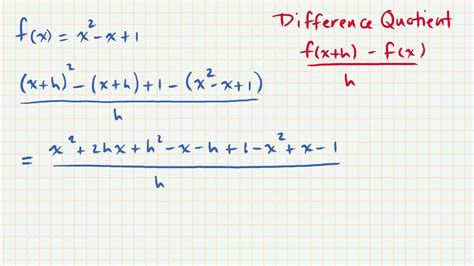 f(x) = x² - x + 1
Difference Quotient
f(x+h) - f(x)
h
(x+h)² - (x+h) + 1 - (x² - x + 1)
h
= x² + 2hx + h² - x - h + 1 - x² + x - 1
h